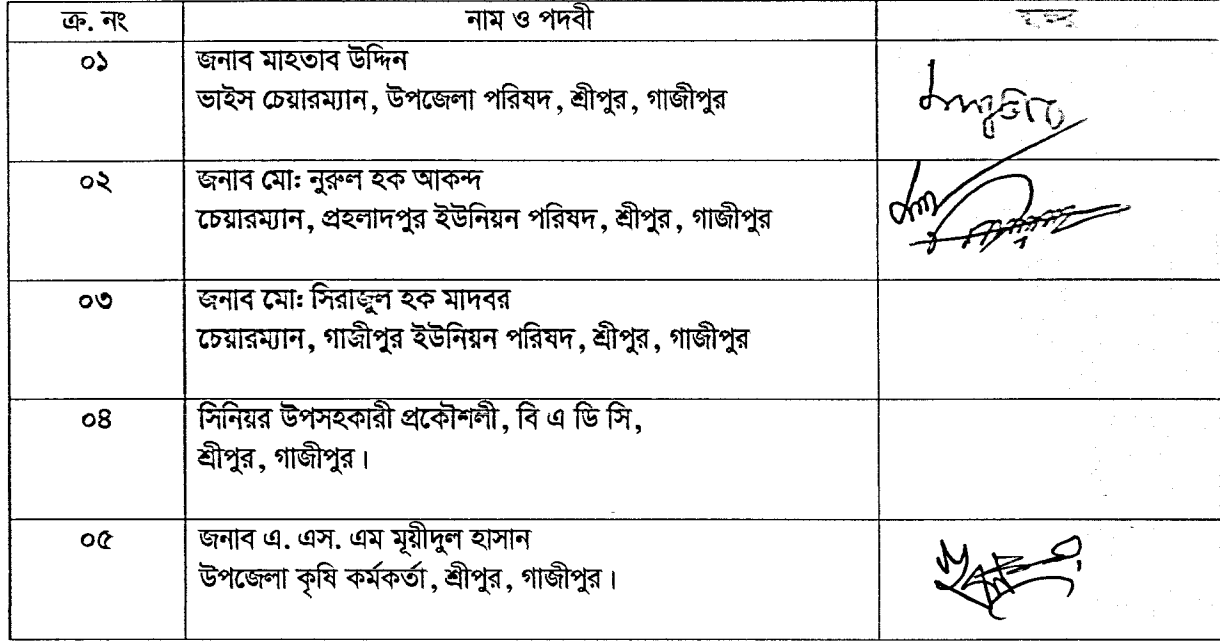 ক্র. নং নাম ও পদবী
০১ জনাব মাহতাব উদ্দিন
ভাইস চেয়ারম্যান, উপজেলা পরিষদ, শ্রীপুর, গাজীপুর
০২ জনাব মোঃ নুরুল হক আকন্দ
চেয়ারম্যান, প্রহলাদপুর ইউনিয়ন পরিষদ, শ্রীপুর, গাজীপুর
০৩ জনাব মোঃ সিরাজুল হক মাদবর
চেয়ারম্যান, গাজীপুর ইউনিয়ন পরিষদ, শ্রীপুর, গাজীপুর
০৪ সিনিয়র উপসহকারী প্রকৌশলী, বি এ ডি সি,
শ্রীপুর, গাজীপুর।
০৫ জনাব এ. এস. এম মূয়ীদুল হাসান
উপজেলা কৃষি কর্মকর্তা, শ্রীপুর, গাজীপুর।